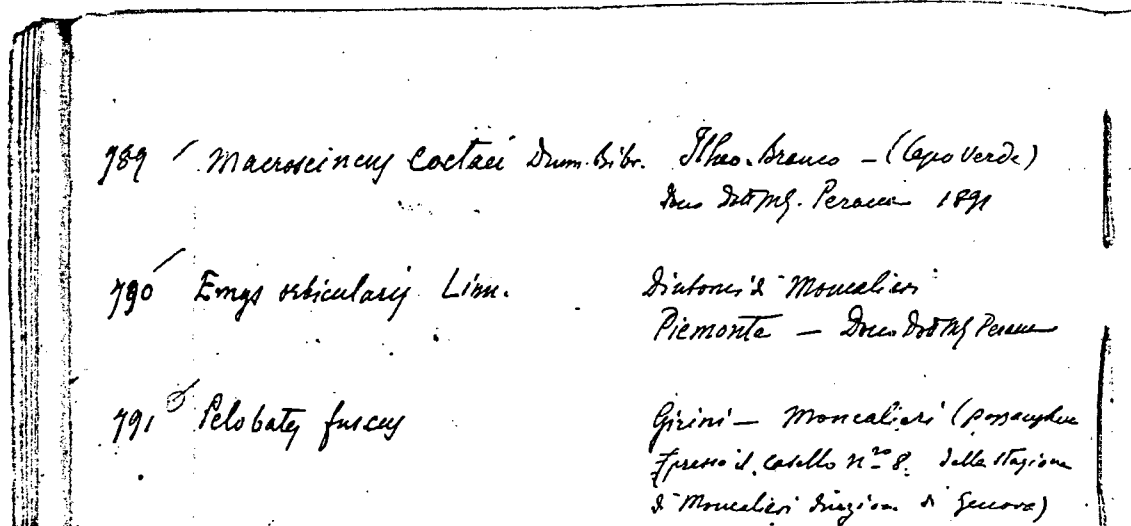 789 Macroscincus Coctaei Dum. Bibr. Ilheo. Branco — (Capo Verde)
Dono Dott MG. Peracca 1891
790 Emys orbicularis Linn. Dintorni di Moncalieri
Piemonte — Dono Dott MG Peracca
791 Pelobates fuscus Girini — Moncalieri (
presso il casello nº 8. della stazione
di Moncalieri direzione di Genova)